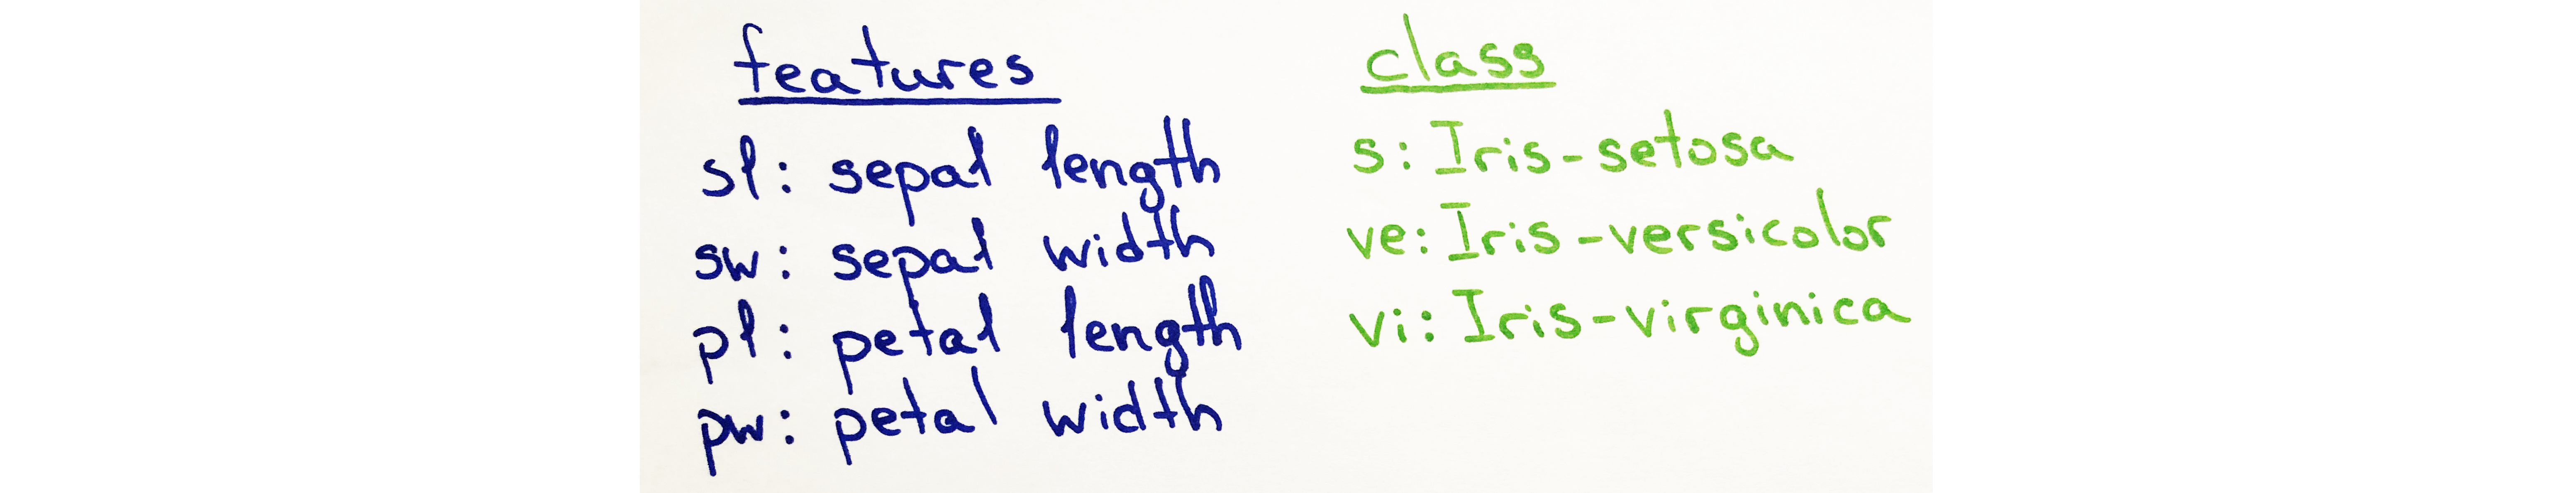 features
sl: sepal length
sw: sepal width
pl: petal length
pw: petal width
class
s: Iris-setosa
ve: Iris-versicolor
vi: Iris-virginica